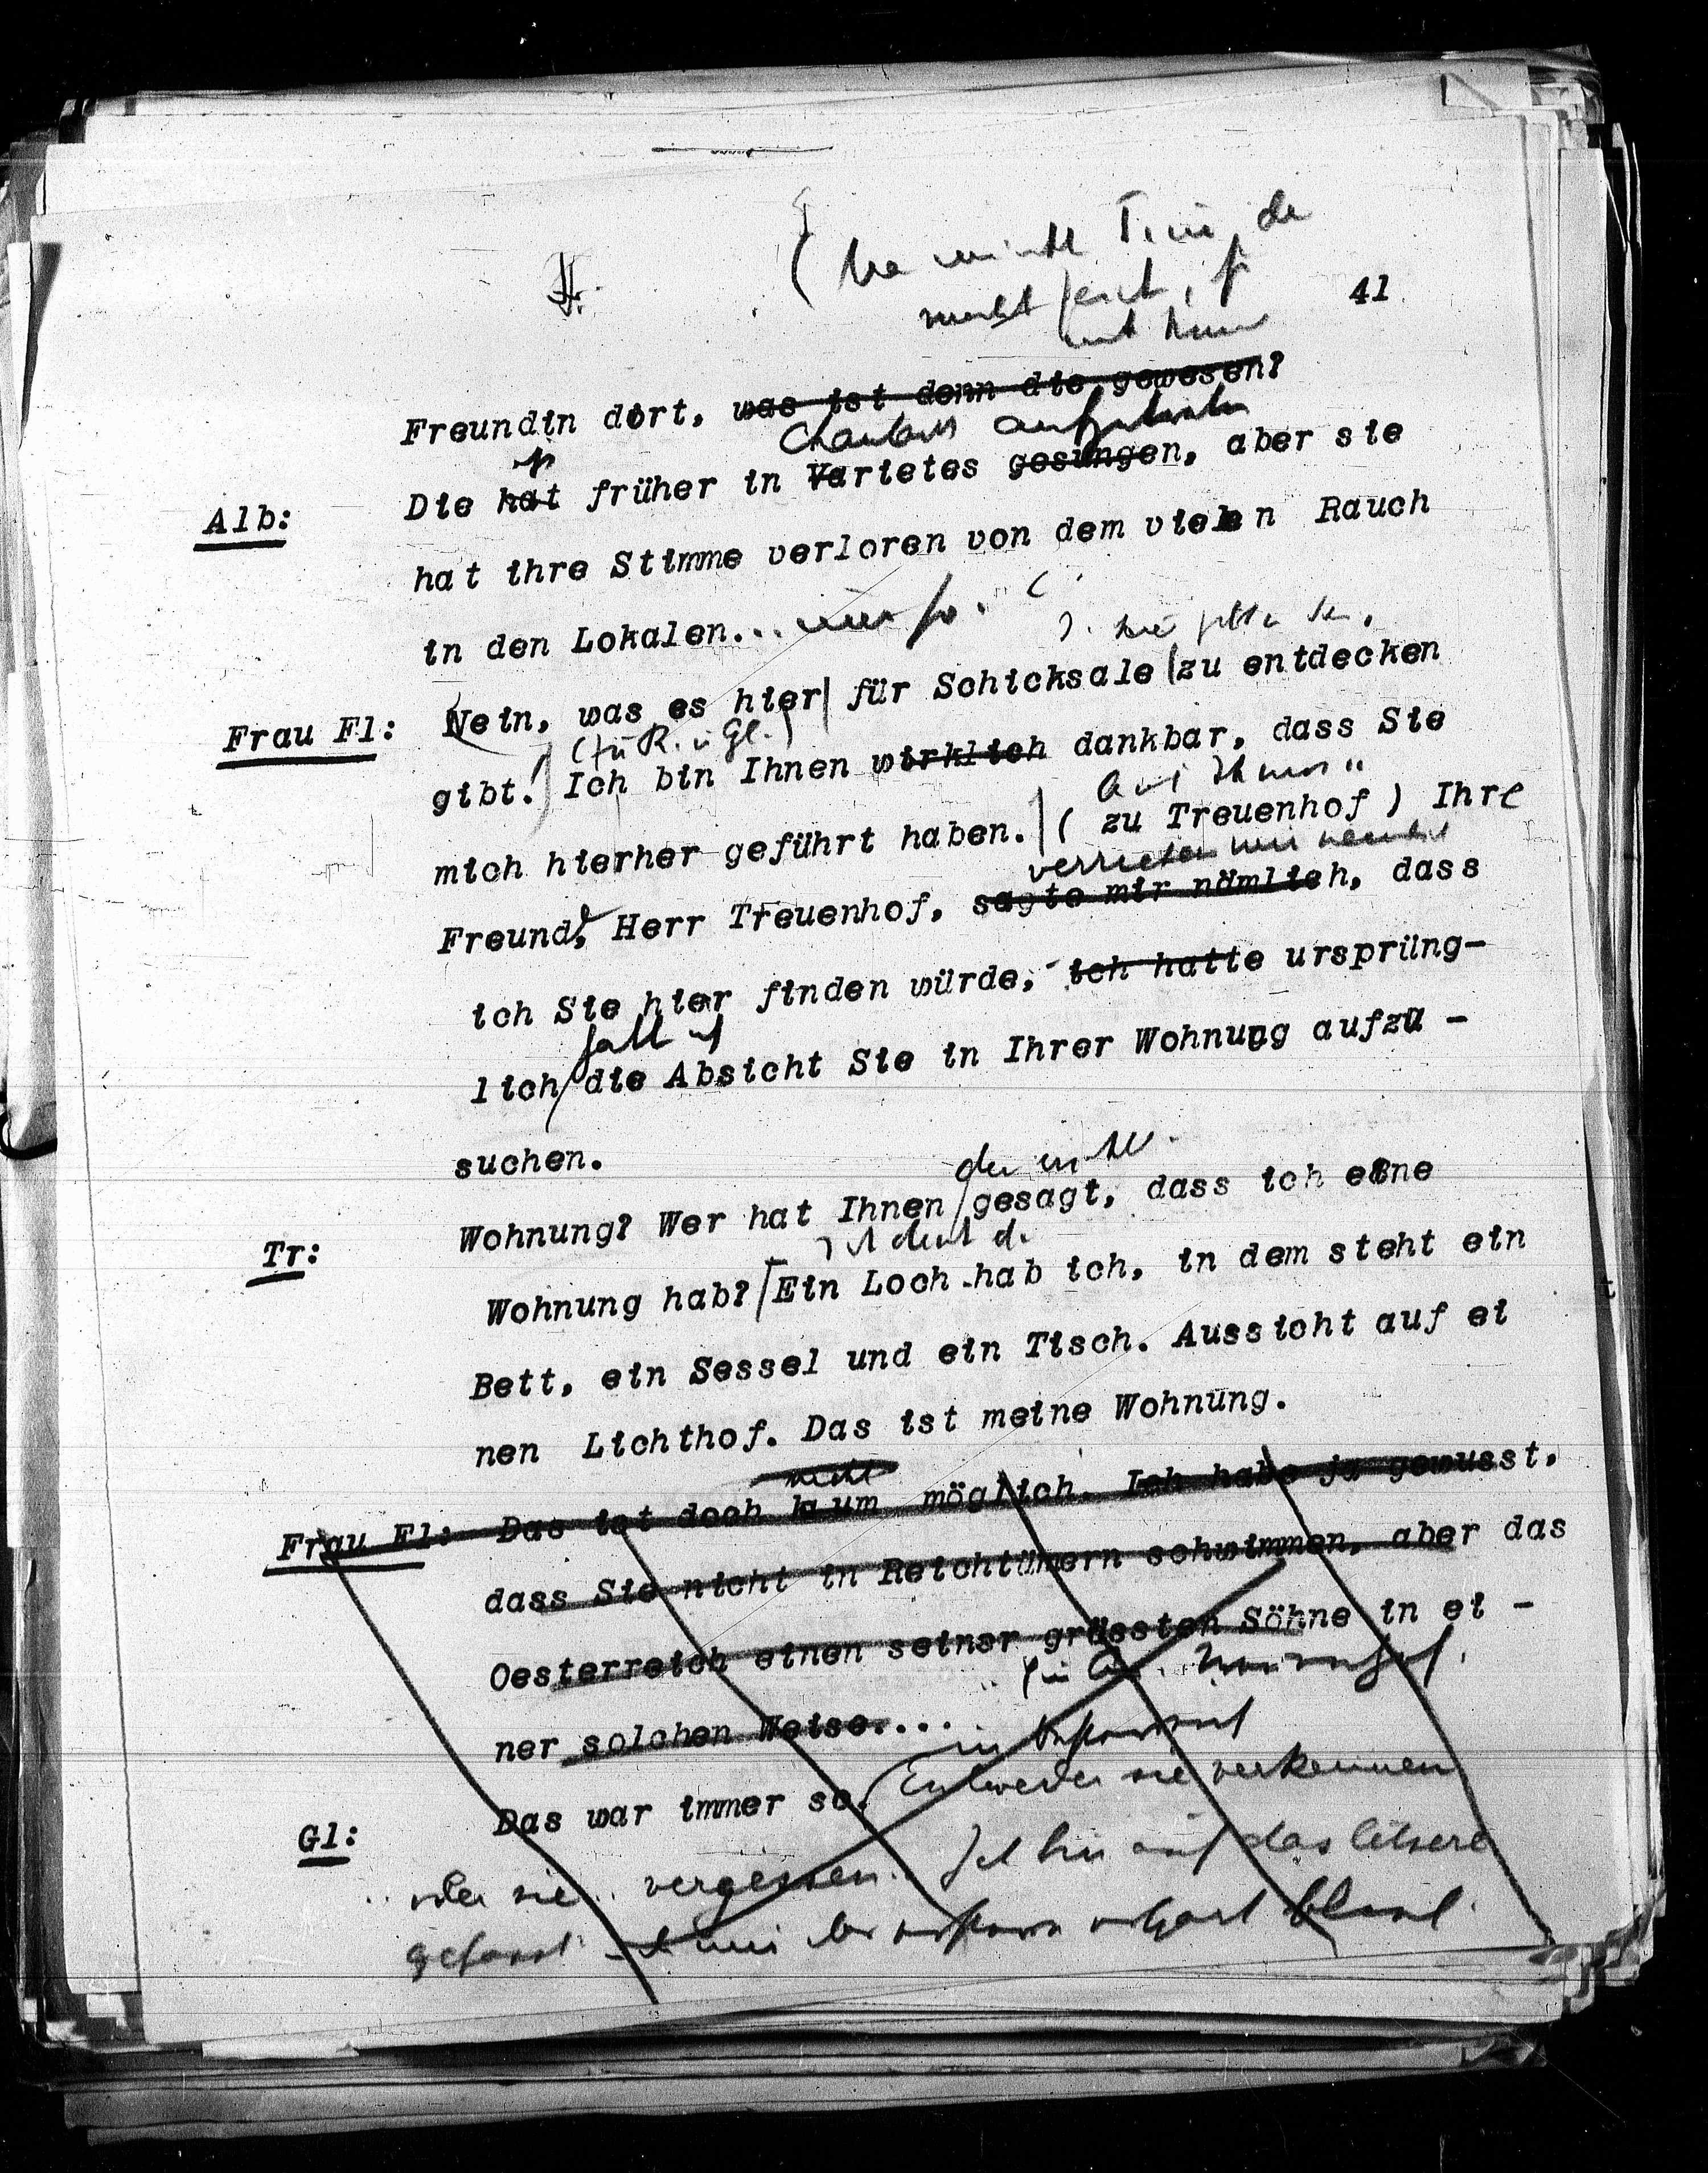 41
Freundin dort, was ist denn die gewesen?
Chansons aufgetreten
Alb: Die hat früher in Varietes gesungen, aber sie
hat ihre Stimme verloren von dem vielen Rauch
in den Lokalen...
Frau Fl: Nein, was es hier für Schicksale zu entdecken
(zu R. u Gl.)
gibt! Ich bin Ihnen wirklich dankbar, dass Sie
mich hierher geführt haben. ( zu Treuenhof ) Ihre
verrieten mir
Freunde, Herr Treuenhof, sagte mir nämlich, dass
ich Sie hier finden würde, ich hatte ursprüng-
hatt ich
lich die Absicht Sie in Ihrer Wohnung aufzu -
suchen.
Tr: Wohnung? Wer hat Ihnen gesagt, dass ich eine
Wohnung hab? Ein Loch hab ich, in dem steht ein
Bett, ein Sessel und ein Tisch. Aussicht auf ei
nen Lichthof. Das ist meine Wohnung.
nicht
Frau Fl: Das ist doch kaum möglich. Ich habe ja gewusst,
dass Sie nicht in Reichtümern schwimmen, aber das
Oesterreich einen seiner grössten Söhne in ei -
ner solchen Weise....
Gl: Das war immer so. Entweder sie verkennen
oder sie vergessen. Ich bin auf das letztere
gefasst